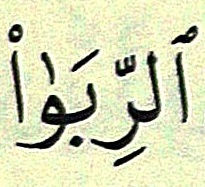 ٱلرِّبَوٰا۟